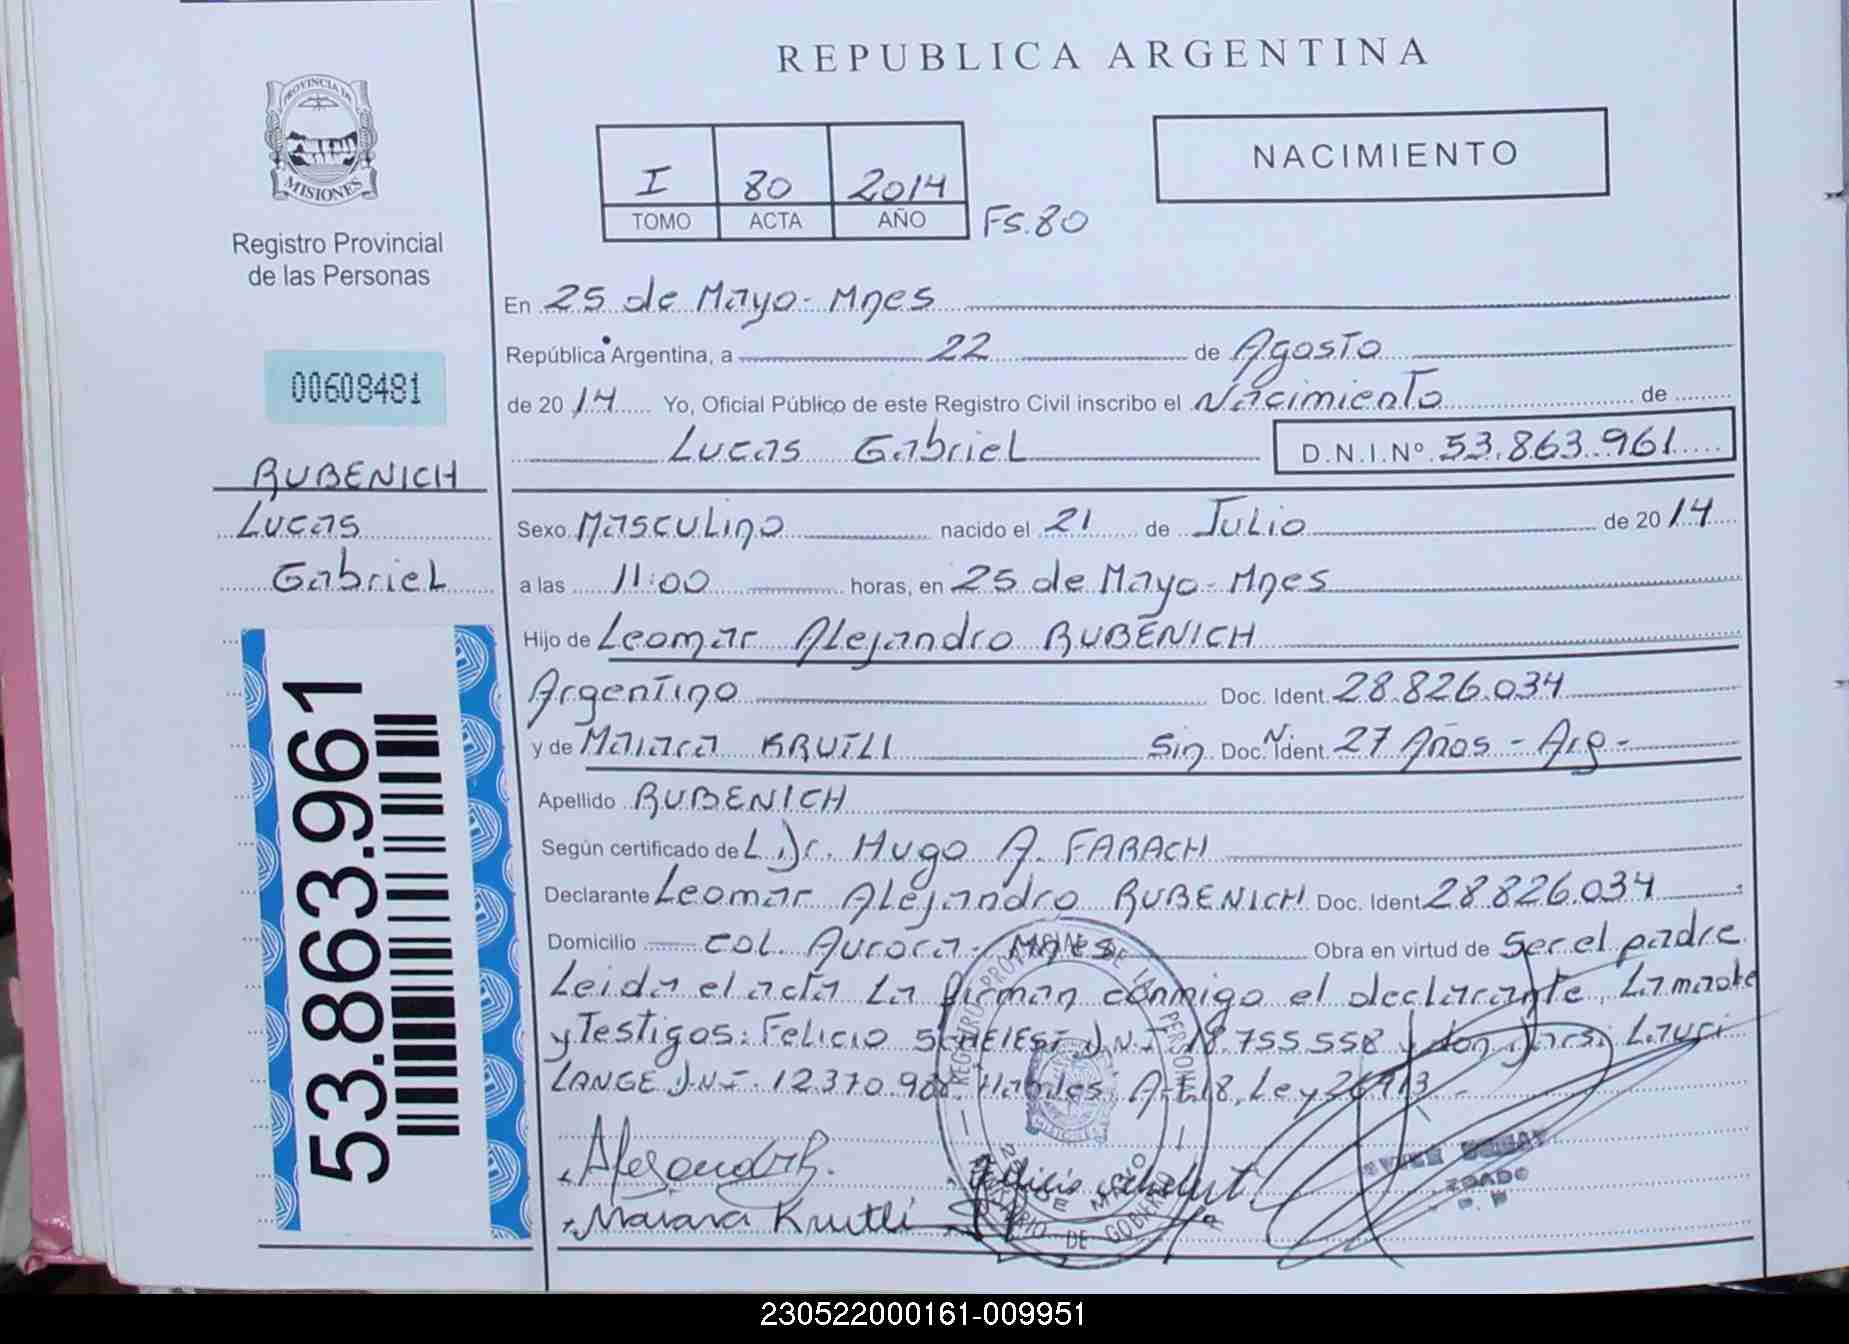 REPUBLICA ARGENTINA
PROVINCIA DE MISIONES
Registro Provincial
de las Personas
I 80 2014
TOMO ACTA AÑO FS.80
NACIMIENTO
00608481
RUBENICH
Lucas
Gabriel
53.863.961
En 25 de Mayo - Mnes
República Argentina, a 22 de Agosto
de 2014 Yo, Oficial Público de este Registro Civil inscribo el Nacimiento de
Lucas Gabriel D.N.I.Nº 53.863.961
Sexo Masculino nacido el 21 de Julio de 2014
a las 11:00 horas, en 25 de Mayo - Mnes
Hijo de Leomar Alejandro RUBENICH
Argentino Doc. Ident. 28.826.034
y de Maiara KRUTLI Sin Doc. Ident. 27 Años - Arg -
Apellido RUBENICH
Según certificado de L Dr. Hugo A. FARACH
Declarante Leomar Alejandro RUBENICH Doc. Ident. 28.826.034
Domicilio Col. Aurora - Mnes Obra en virtud de Ser el padre
Leida el acta La firman conmigo el declarante, La madre
y Testigos: Felicio SCHELEST D.N.I 18.755.558 y
LANGE D.N.I. 12.370. Ley
Alejandro R.
Maiara Krutli
Felicio Schelest
230522000161-009951